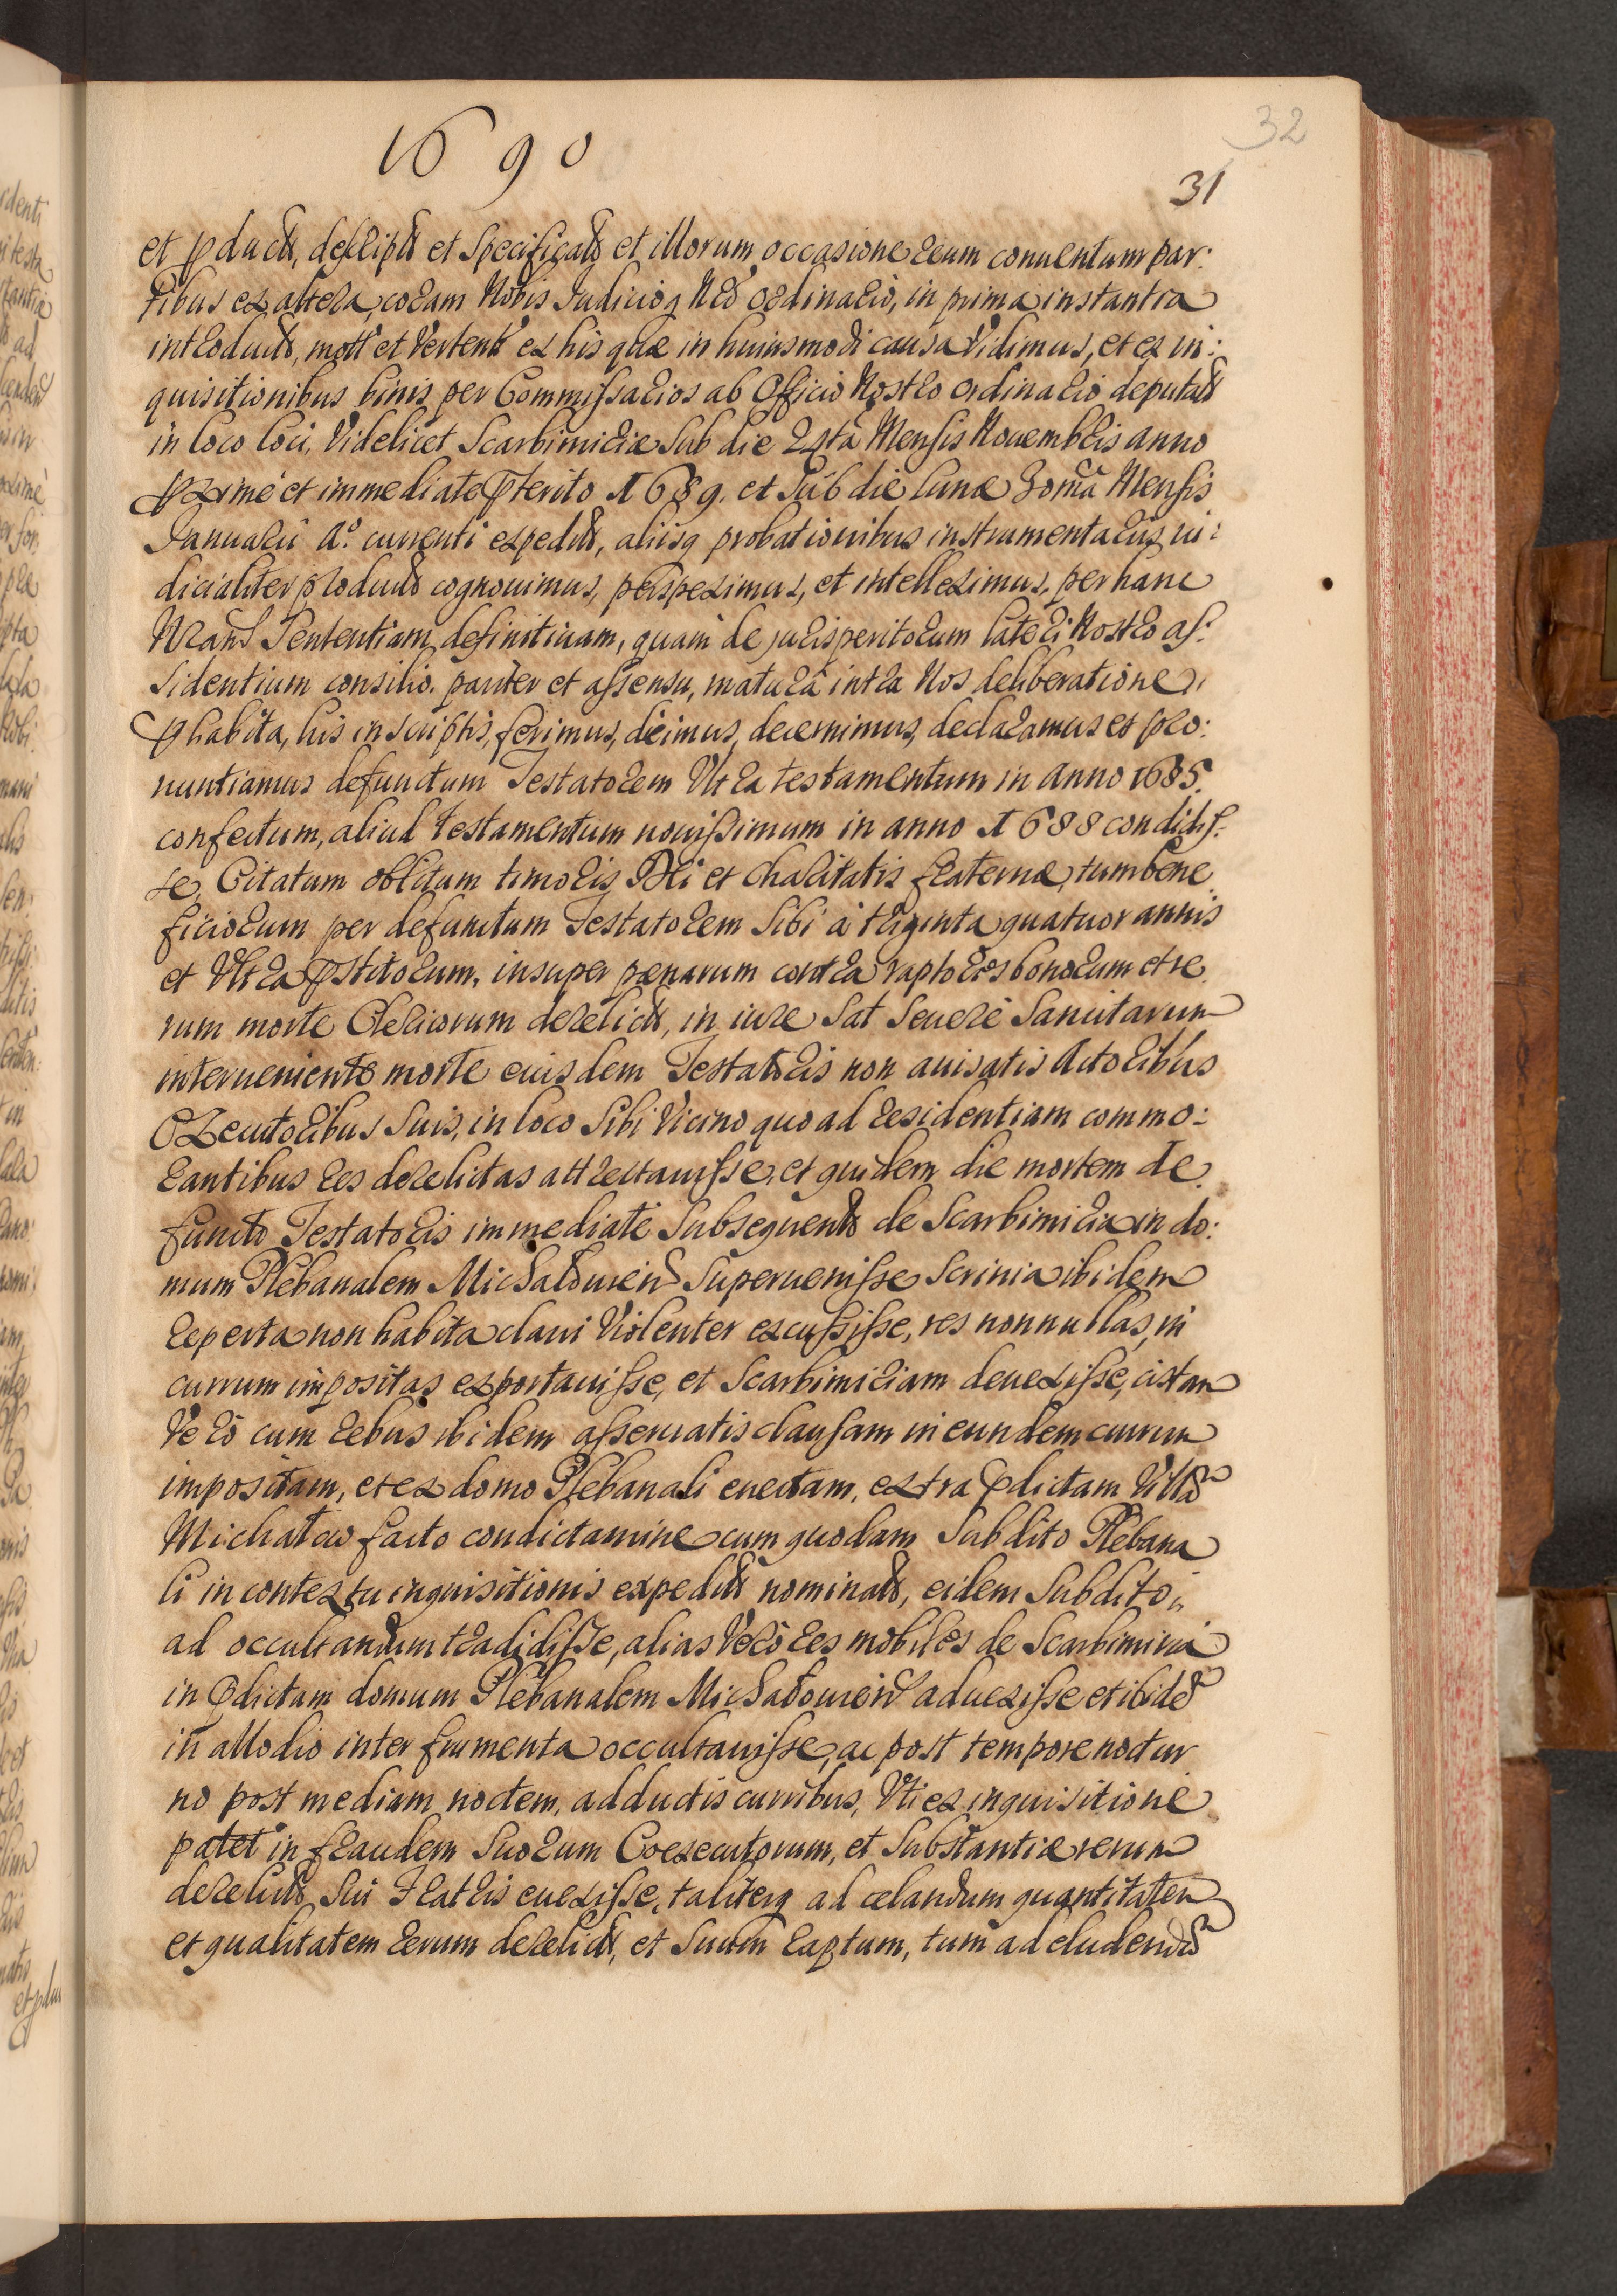 1690
32
31
et pductis, descriptis et specificatis et illorum occasione reum conuentum par:
tibus ex altera, coram Nobis Iudicioq Nro ordinario, in prima instantia
introductis, mott et Vertenti ex his quæ in huiusmodi causa Vidimus, et ex in:
quisitionibus binis per Commissarios ab Officio Nostro ordinario deputatis
in loco loci, Videlicet Scarbimiriæ sub die 24ta Mensis Nouembris anno
pxime et immediate pterito 1689. et sub die lunæ 30ma Mensis
Ianuarii Ao. currenti expeditis, aliisq probationibus instrumentariis, iu:
dicialiter productis cognouimus, perspeximus, et intelleximus, per hanc
Nram Sententiam definitiuam, quam de jurisperitorum lateri Nostro as:
sidentium consilio pariter et assensu, maturâ intra Nos deliberatione
phabita, his in scriptis, ferimus, dicimus, decernimus, declaramus et pro:
nuntiamus defunctum Testatorem Vltra testamentum in anno 1685.
confectum, aliud testamentum nouissimum in anno 1688 condidis:
se, Citatum oblitum timoris Dei et charitatis fraternæ, tum bene
ficiorum per defunctum Testatorem sibi à triginta quatuor annis
et Vltra pstitorum, insuper pænarum contra raptores bonorum et re
rum morte Clericorum derelictis, in iure sat seuere sancitarum
interueniente morte eiusdem Testatoris non auisatis Actoribus
Exeutoribus suis, in loco sibi Vicino quo ad residentiam commo:
rantibus res derelictas attrectauisse, et quidem die mortem de
functo Testatoris immediate subsequentis de Scarbimiria in do:
mum Plebanalem Michalouien superuenisse Scrinia ibidem
reperta non habita claui Violenter excussisse, res nonnullas, in
currum impositas exportauisse, et Scarbimiriam deuexisse, cistam
Vero cum rebus ibidem asseruatis clausam in eundem currum
impositam, et ex domo Plebanali euectam, extra pdictam Villã
Michałow facto condictamine cum quodam Subdito Plebana
li in contextu inquisitionis expeditis nominatis, eidem Subdito
ad occultandum tradidisse, alias Vero res mobiles de Scarbimiria
in pdictam domum Plebanalem Michałouien aduexisse et ibidẽ
in allodio inter frumenta occultauisse, ac post tempore noctur
no post mediam noctem, adductis curribus, Vti ex inquisitione
patet in fraudem suorum Coexecutorum, et substantiæ rerum
derelictis sui Fratris euexisse, taliterq ad celandum quantitatem
et qualitatem rerum derelictis, et suum raptum, tum ad eludendũ